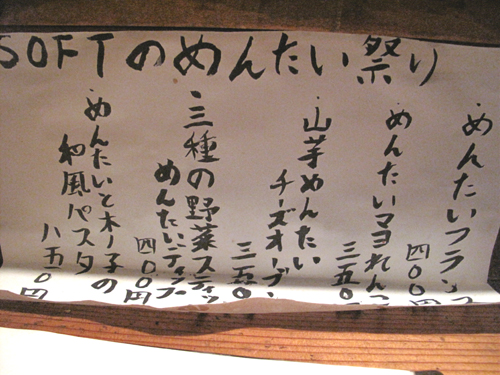 SOFTのめんたい祭り
・めんたいフランス
四〇〇円
・めんたいマヨれんこ
三五〇
・山芋めんたい
チーズオーブン
三五〇
・三種の野菜スティッ
めんたいディップ
四〇〇円
・めんたいと木ノ子の
和風パスタ
八五〇円